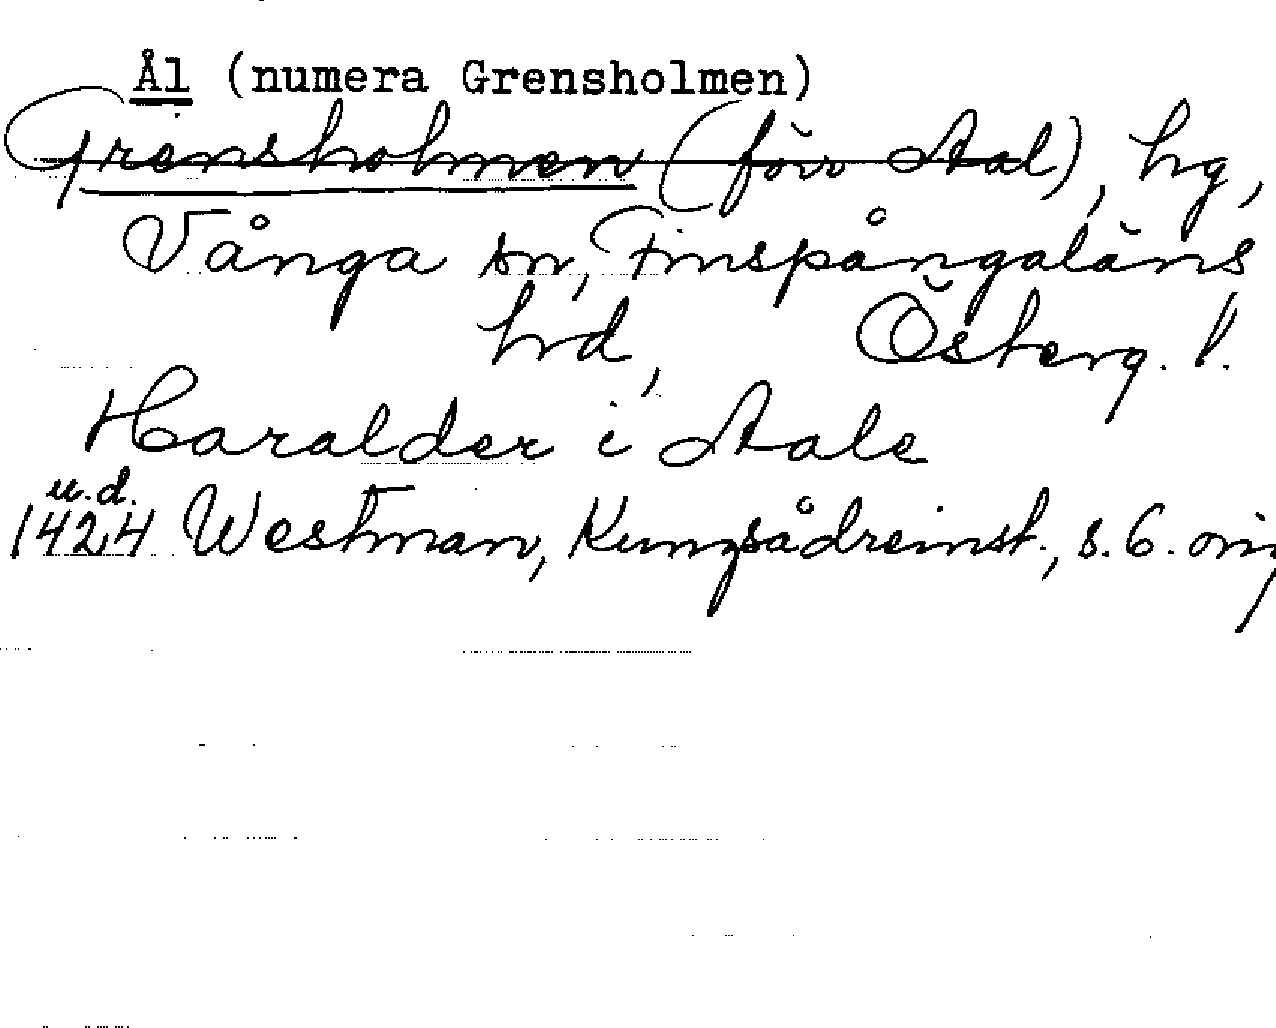 Ål (numera Grensholmen)
Grensholmen (förr Aal), hg,
Vånga sn, Finspångaläns
hrd, Österg. l.
Haralder i Aale
u.d.
1424 Westman, Kungsådreinst., s. 6.